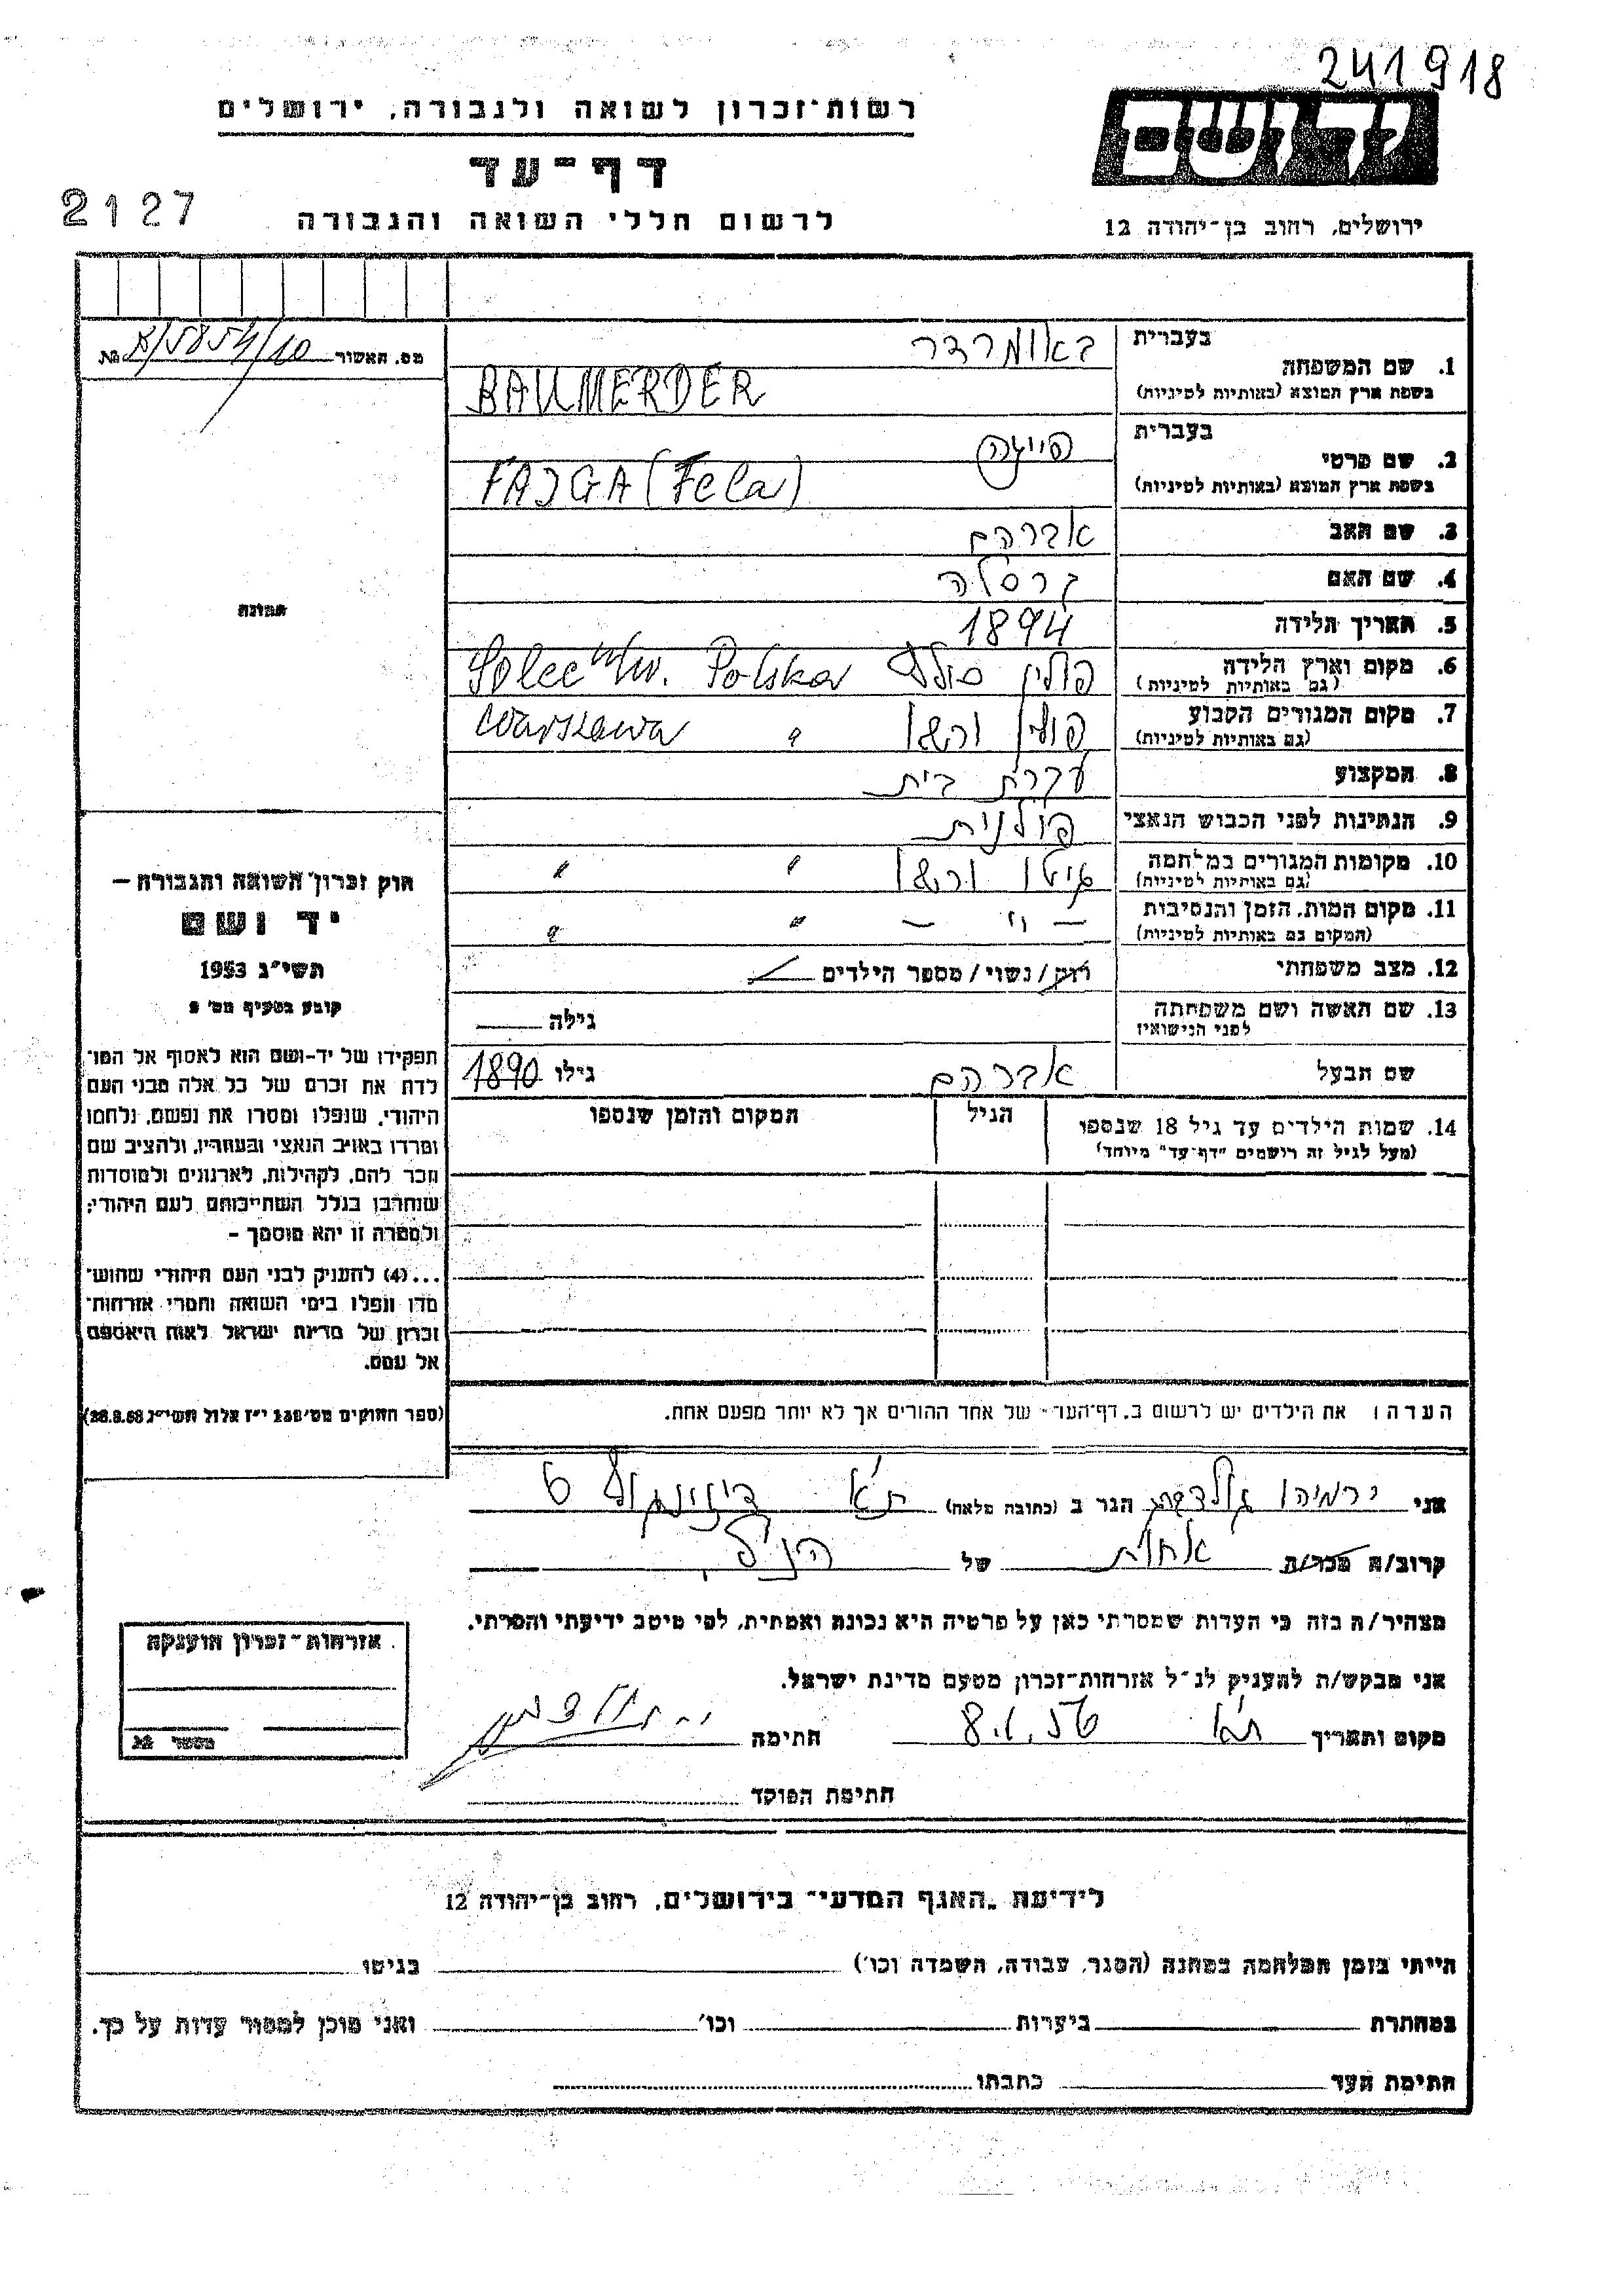 241918
רשות-זכרון לשואה ולגבורה, ירושלים
יד ושם
דף-עד
2127
לרשום חללי השואה והגבורה
ירושלים, רחוב בן-יהודה 12
מס. האשור
בעברית באומרדר
1. שם המשפחה
בשפת ארץ המוצא (באותיות לטיניות) BAUMERDER
בעברית פייגה
2. שם פרטי
בשפת ארץ המוצא (באותיות לטיניות) FAJGA (Fela)
3. שם האב אברהם
4. שם האם
5. תאריך הלידה 1894
6. מקום וארץ הלידה פולין סולץ Solec n/w. Polska
(גם באותיות לטיניות)
7. מקום המגורים הקבוע פולין ורשה " Warszawa
(גם באותיות לטיניות)
8. המקצוע עקרת בית
9. הנתינות לפני הכבוש הנאצי פולנית
10. מקומות המגורים במלחמה גיטו ורשה " "
(גם באותיות לטיניות)
11. מקום המות, הזמן והנסיבות — " — " "
(המקום גם באותיות לטיניות)
12. מצב משפחתי רווק/נשוי/מספר הילדים —
13. שם האשה ושם משפחתה גילה
לפני הנישואין
שם הבעל אברהם גילו 1890
14. שמות הילדים עד גיל 18 שנספו הגיל המקום והזמן שנספו
(מעל לגיל זה רושמים "דף-עד" מיוחד)
תמונה
חוק זכרון השואה והגבורה —
יד ושם
תשי"ג 1953
קובע בסעיף מס'
תפקידו של יד-ושם הוא לאסוף אל המו־
לדת את זכרם של כל אלה מבני העם
היהודי, שנפלו ומסרו את נפשם, נלחמו
ומרדו באויב הנאצי ובעוזריו, ולהציב שם
וזכר להם, לקהילות, לארגונים ולמוסדות
שנחרבו בגלל השתייכותם לעם היהודי;
ולמטרה זו יהא מוסמך -
...(4) להעניק לבני העם היהודי שהוש־
מדו ונפלו בימי השואה והמרי אזרחות־
זכרון של מדינת ישראל לאות היאספם
אל עמם.
(ספר החוקים מס' 132 י"ז אלול תשי"ג
הערה: את הילדים יש לרשום ב"דף-העד" של אחד ההורים אך לא יותר מפעם אחת.
אני ירמיהו הגר ב (כתובה מלאה) ת"א
קרוב/ה מכר/ת אחות של הנ"ל
מצהיר/ה בזה כי העדות שמסרתי כאן על פרטיה היא נכונה ואמתית, לפי מיטב ידיעתי והכרתי.
אני מבקש/ת להעניק לנ"ל אזרחות-זכרון מטעם מדינת ישראל.
מקום ותאריך ת"א 8.1.56 חתימה
חתימת הפוקד
אזרחות-זכרון הוענקה
מספר
לידיעת "האגף המדעי" בירושלים, רחוב בן-יהודה 12
הייתי בזמן המלחמה במחנה (הסגר, עבודה, השמדה וכו') בגיטו
במחתרת ביערות וכו' ואני מוכן למסור עדות על כך.
חתימת העד כתבתו